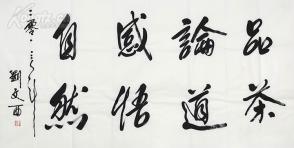 品茶
論道
感悟
自然
二零一三年
劉文西